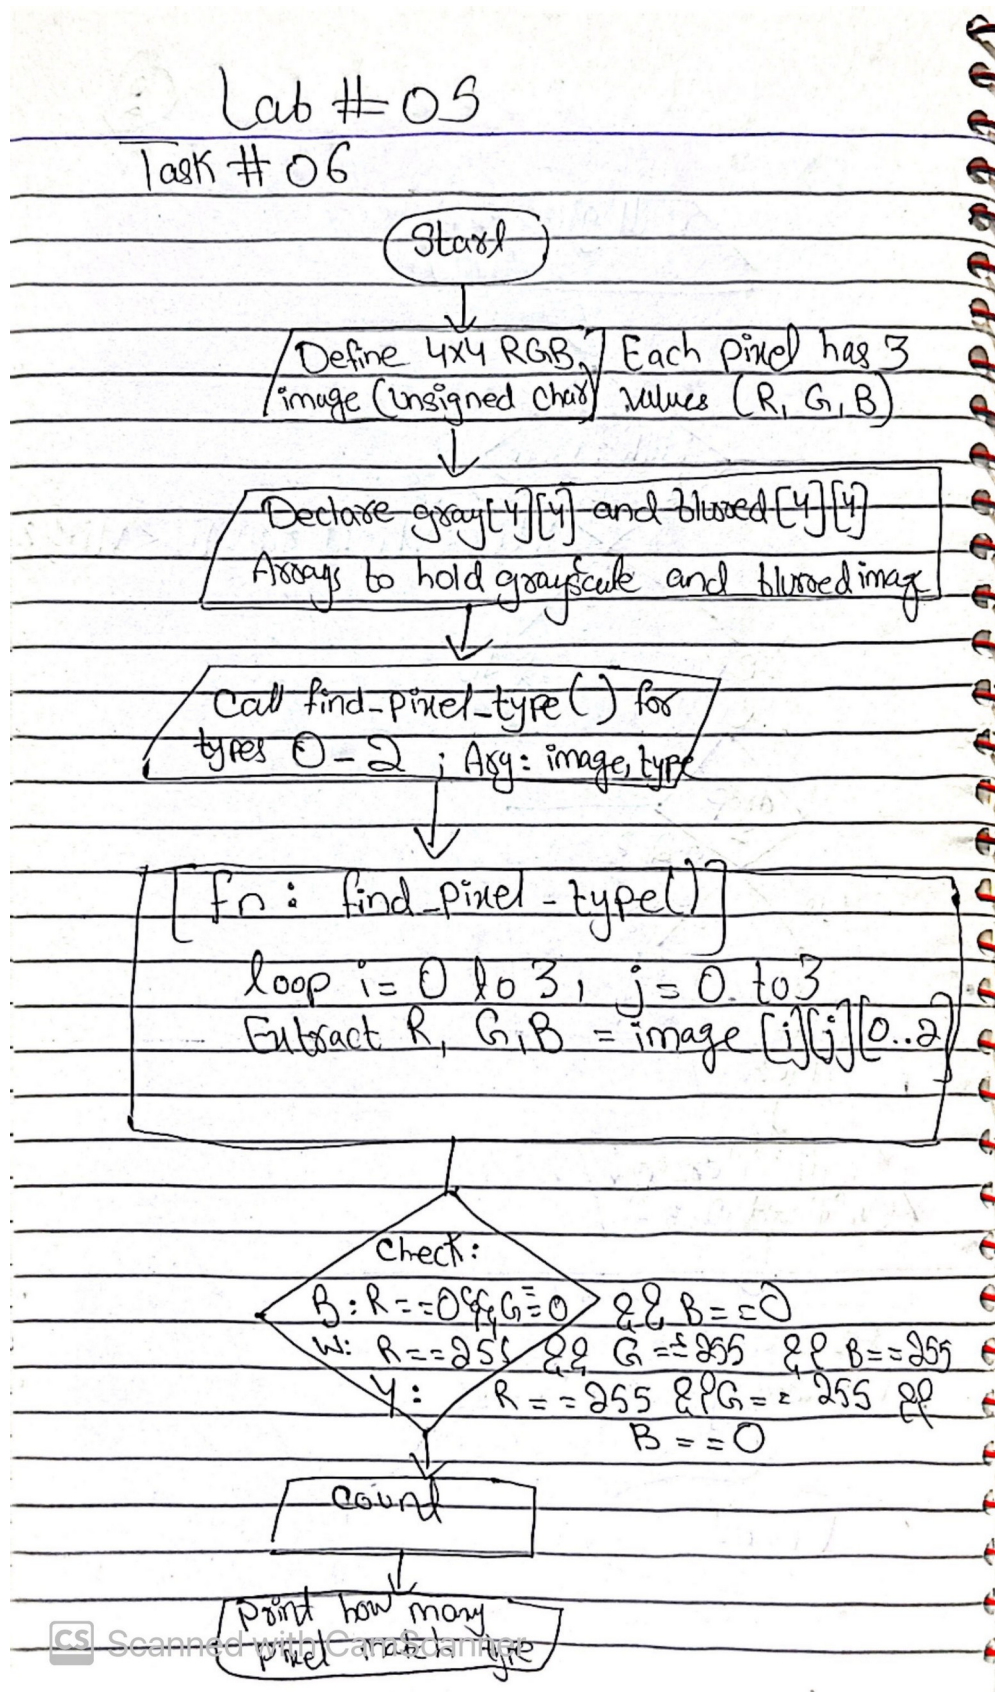 Lab # 05
Task # 06
Start
Define 4x4 RGB, Each pixel has 3
image (unsigned char) values (R, G, B)
Declare gray[4][4] and blurred[4][4]
Arrays to hold grayscale and blurred imag
Call find_pixel_type() for
types 0-2 ; Arg: image, type
[fn: find_pixel-type()]
loop i=0 to 3, j=0 to 3
Extract R, G, B = image [i][j][0..2]
Check:
B: R==0 && G==0 && B==0
W: R==255 && G==255 && B==255
Y: R==255 && G==255 &&
B==0
Count
Print how many
pixel match type
CS Scanned with CamScanner